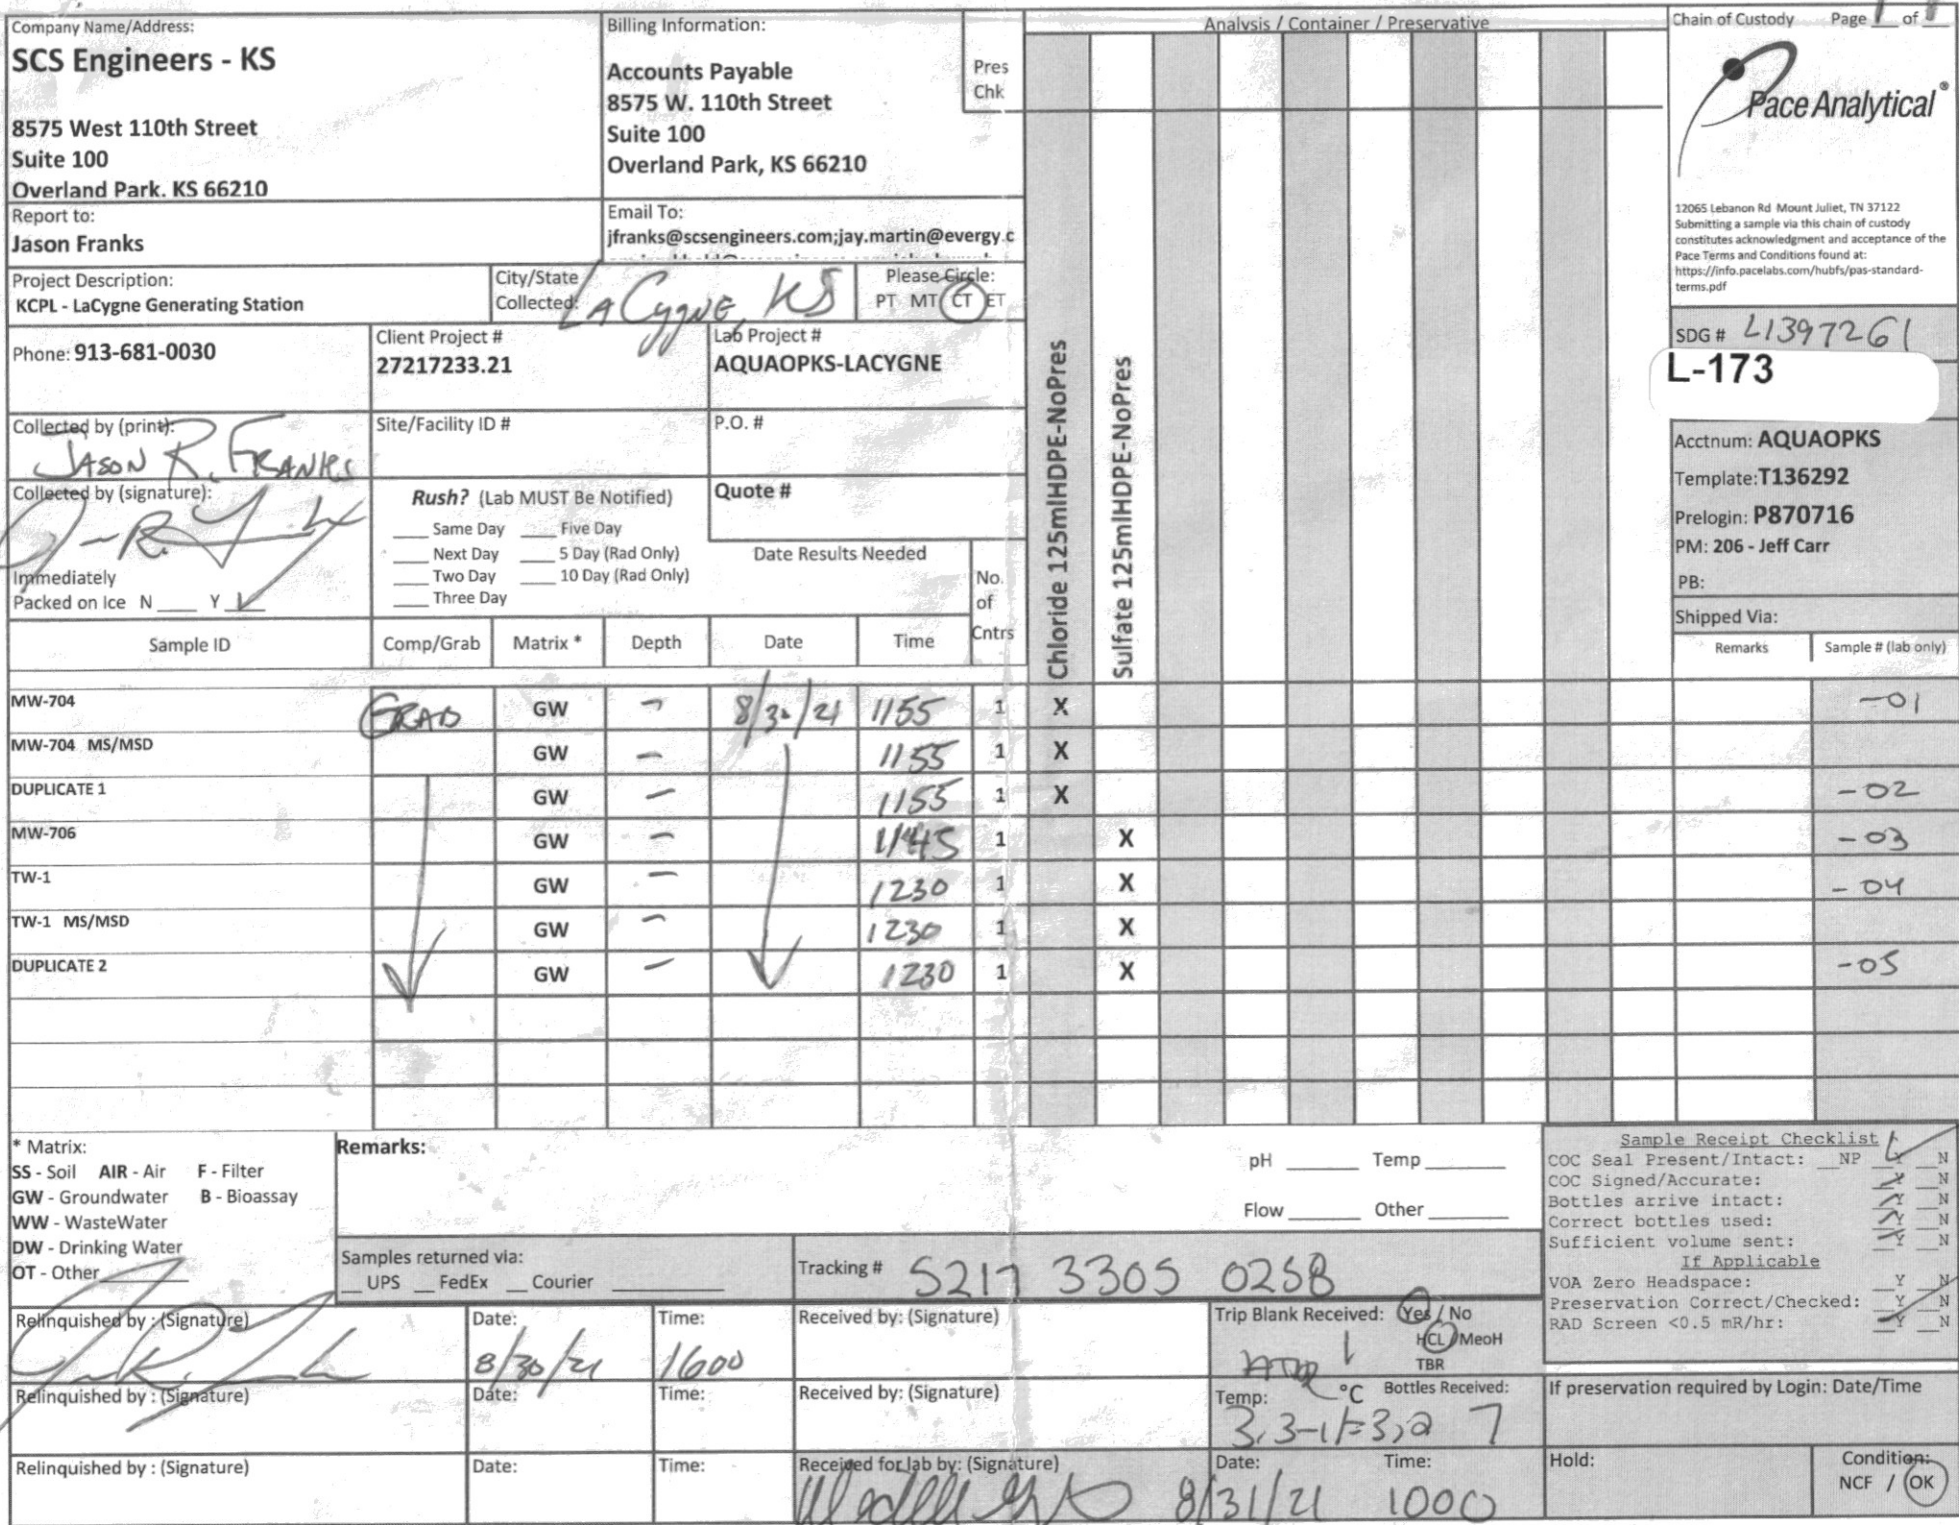 Company Name/Address:
SCS Engineers - KS
8575 West 110th Street
Suite 100
Overland Park. KS 66210
Billing Information:
Accounts Payable
8575 W. 110th Street
Suite 100
Overland Park, KS 66210
Pres
Chk
Analysis / Container / Preservative
Chain of Custody Page 1 of 1
Pace Analytical®
12065 Lebanon Rd Mount Juliet, TN 37122
Submitting a sample via this chain of custody
constitutes acknowledgment and acceptance of the
Pace Terms and Conditions found at:
https://info.pacelabs.com/hubfs/pas-standard-
terms.pdf
Report to:
Jason Franks
Email To:
jfranks@scsengineers.com;jay.martin@evergy.c
Project Description:
KCPL - LaCygne Generating Station
City/State
Collected: LA CYGNE, KS
Please Circle:
PT MT CT ET
Phone: 913-681-0030
Client Project #
27217233.21
Lab Project #
AQUAOPKS-LACYGNE
SDG # L1397261
L-173
Collected by (print):
JASON R. FRANKS
Site/Facility ID #
P.O. #
Acctnum: AQUAOPKS
Template:T136292
Prelogin: P870716
PM: 206 - Jeff Carr
PB:
Shipped Via:
Collected by (signature):
Immediately
Packed on Ice N ___ Y ___
Rush? (Lab MUST Be Notified)
___ Same Day ___ Five Day
___ Next Day ___ 5 Day (Rad Only)
___ Two Day ___ 10 Day (Rad Only)
___ Three Day
Quote #
Date Results Needed
No.
of
Cntrs
Chloride 125mlHDPE-NoPres
Sulfate 125mlHDPE-NoPres
Sample ID Comp/Grab Matrix * Depth Date Time Remarks Sample # (lab only)
MW-704 GRAB GW - 8/30/21 1155 1 X -01
MW-704 MS/MSD GW - 1155 1 X
DUPLICATE 1 GW - 1155 1 X -02
MW-706 GW - 1145 1 X -03
TW-1 GW - 1230 1 X -04
TW-1 MS/MSD GW - 1230 1 X
DUPLICATE 2 GW - 1230 1 X -05
* Matrix:
SS - Soil AIR - Air F - Filter
GW - Groundwater B - Bioassay
WW - WasteWater
DW - Drinking Water
OT - Other
Remarks:
pH ___ Temp ___
Flow ___ Other ___
Samples returned via:
__ UPS __ FedEx __ Courier
Tracking # 5217 3305 0258
Sample Receipt Checklist
COC Seal Present/Intact: __NP __Y __N
COC Signed/Accurate: __Y __N
Bottles arrive intact: __Y __N
Correct bottles used: __Y __N
Sufficient volume sent: __Y __N
If Applicable
VOA Zero Headspace: __Y __N
Preservation Correct/Checked: __Y __N
RAD Screen <0.5 mR/hr: __Y __N
Relinquished by : (Signature)
Date: 8/30/21
Time: 1600
Received by: (Signature)
Trip Blank Received: Yes / No
HCL / MeoH
TBR
Relinquished by : (Signature)
Date:
Time:
Received by: (Signature)
Temp: °C
3.3-.1=3.2
Bottles Received:
7
If preservation required by Login: Date/Time
Relinquished by : (Signature)
Date:
Time:
Received for lab by: (Signature)
Date: 8/31/21
Time: 1000
Hold:
Condition:
NCF / OK